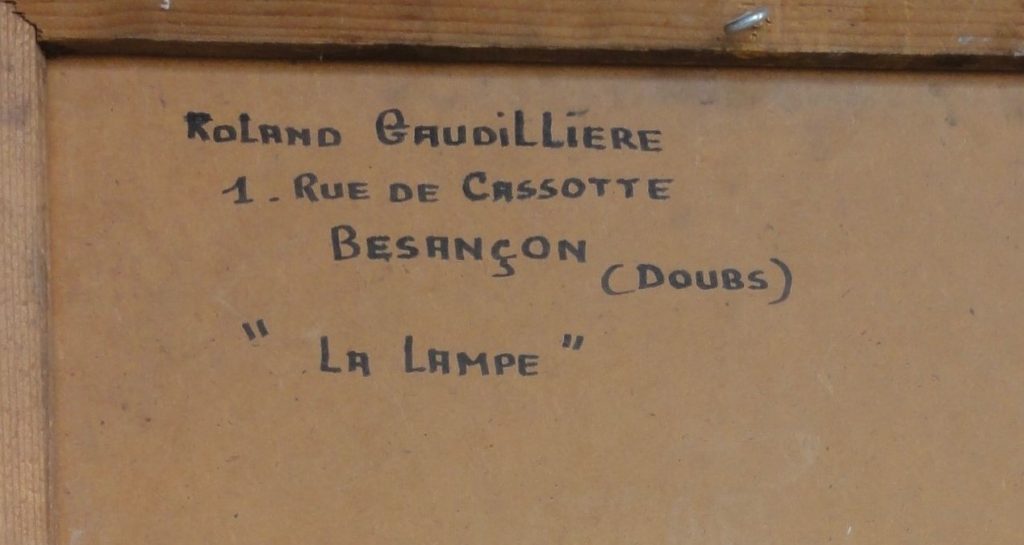 ROLAND GAUDILLIERE
1. RUE DE CASSOTTE
BESANÇON
(DOUBS)
" LA LAMPE "